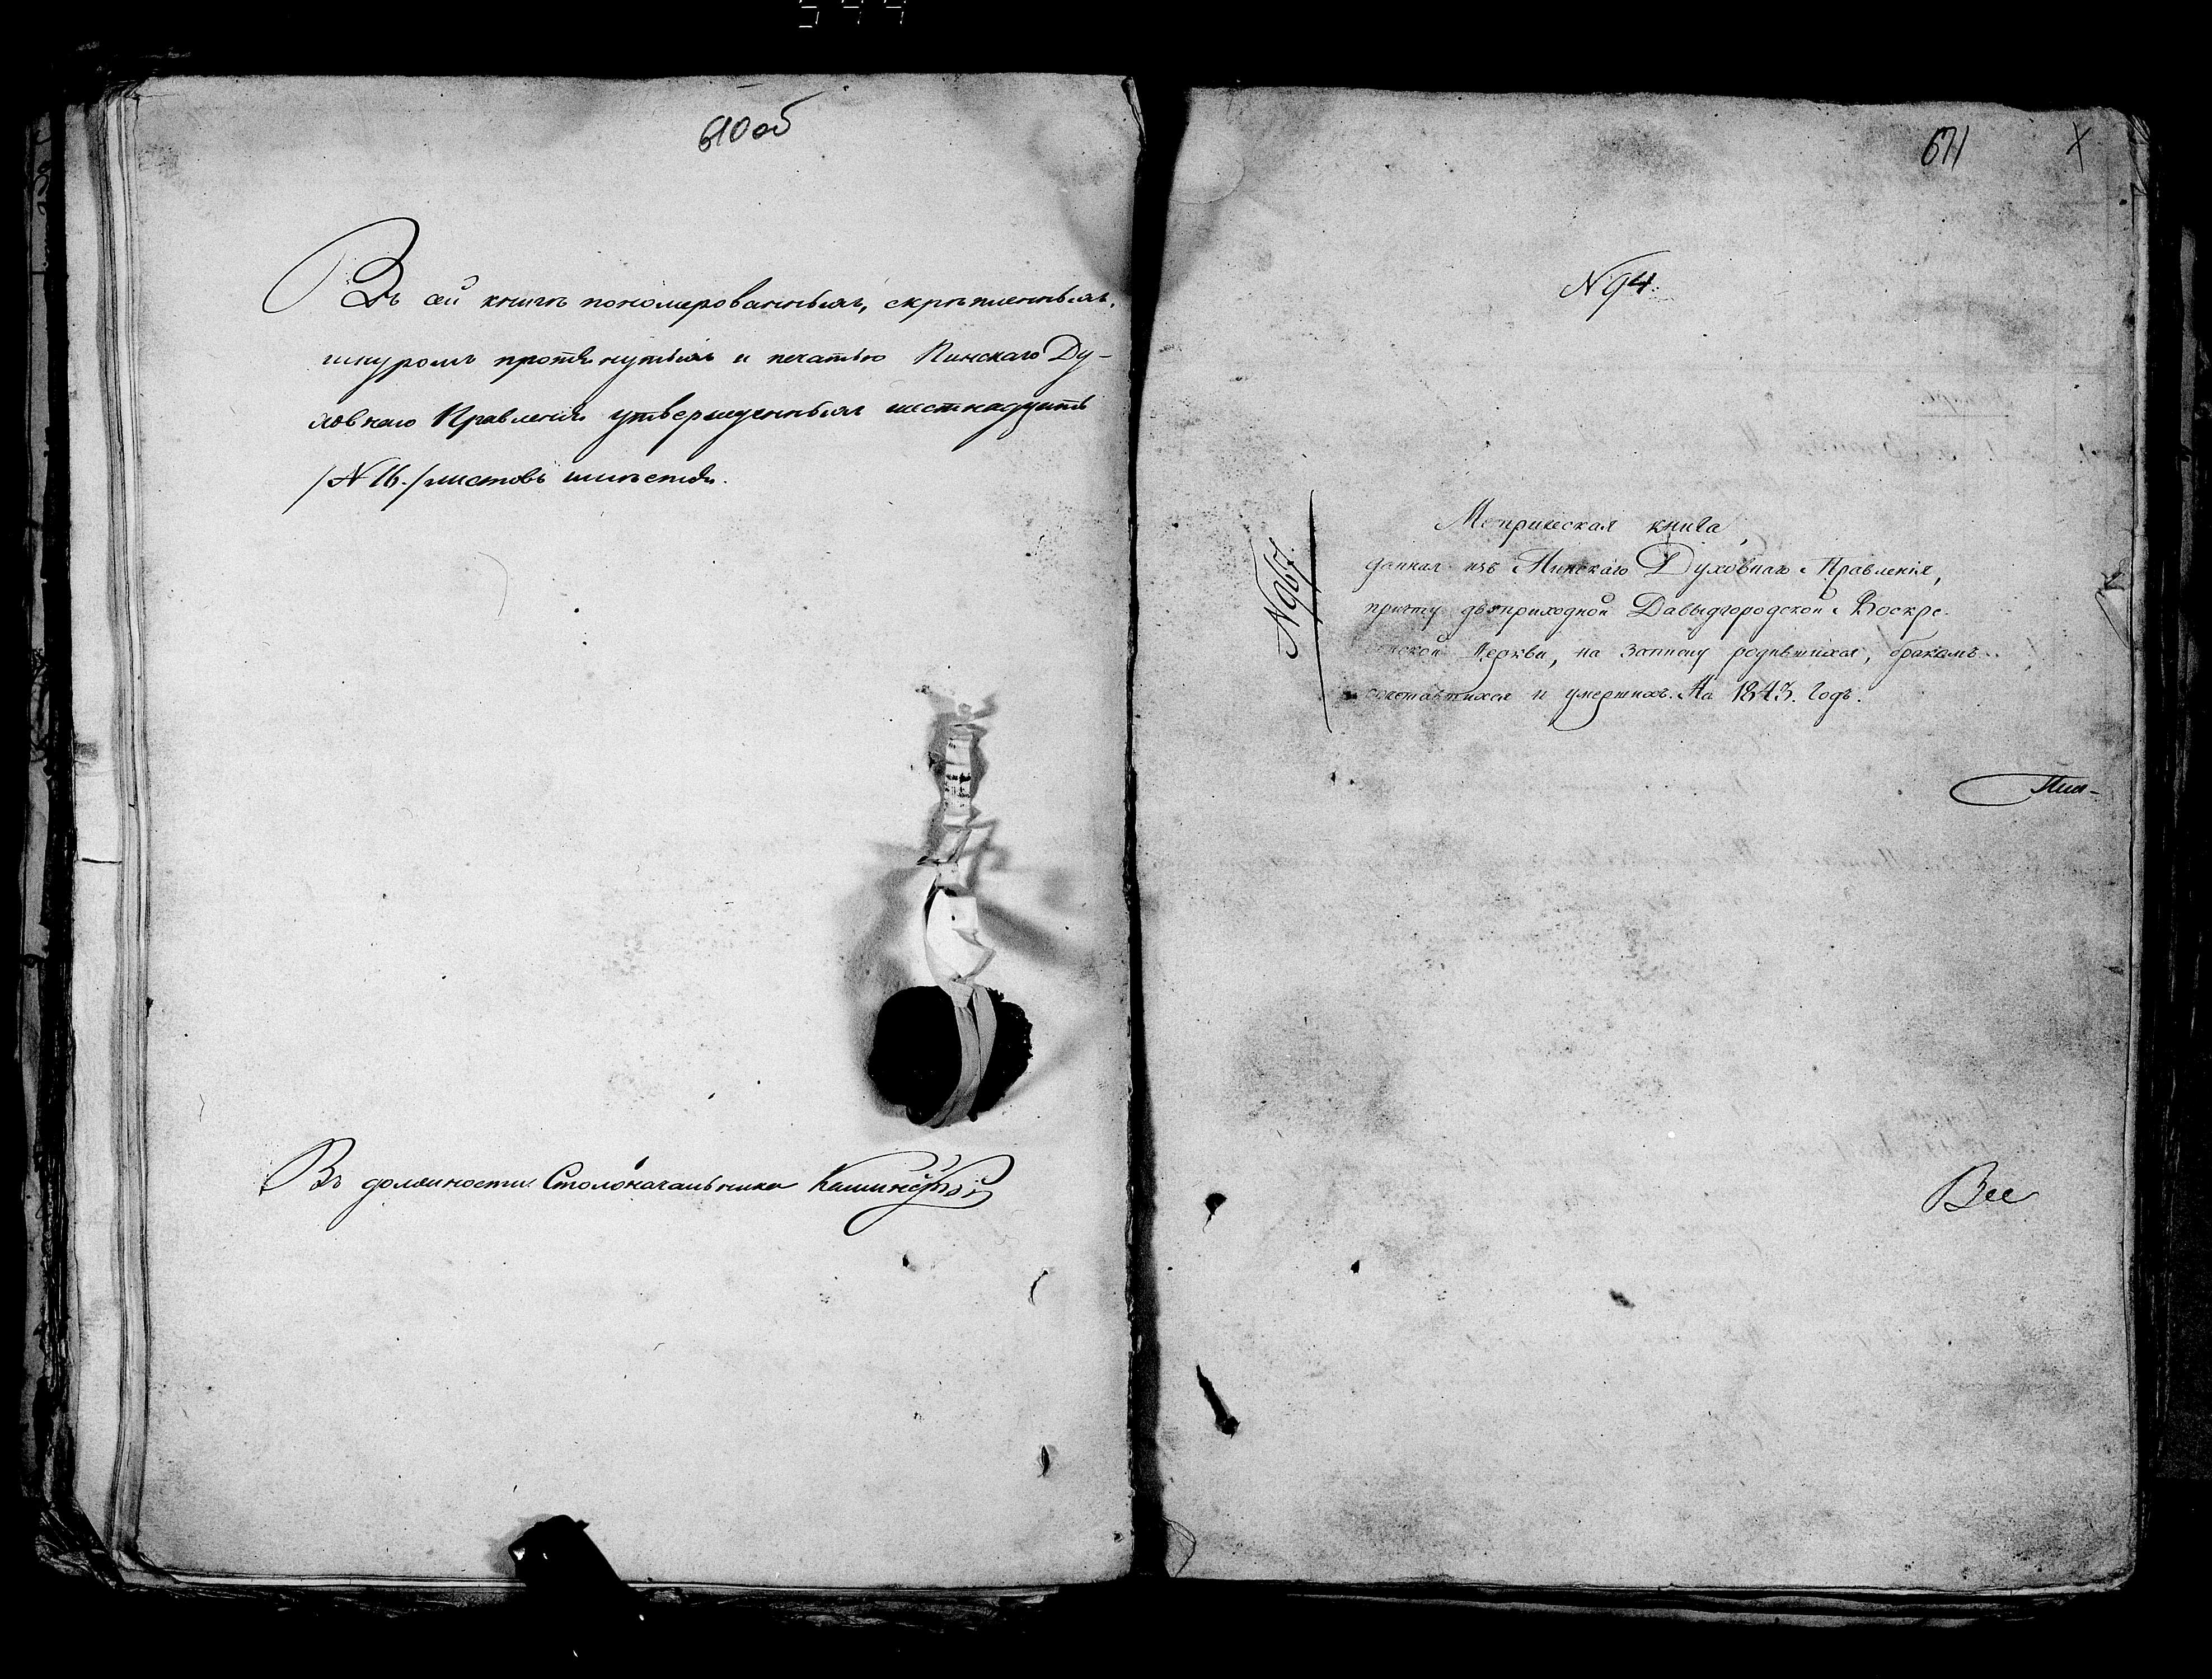 610 об
Въ сей книгѣ пономерованныхъ, скрѣпленныхъ,
шнуромъ протянутыхъ и печатью Пинскаго Ду-
ховнаго Правленія утвержденныхъ шестнадцать
/№ 16./ листовъ имѣется.
Въ должности Столоначальника
611
№ 94.
№ 967.
Метрическая книга,
данная изъ Пинскаго Духовнаго Правленія,
причту двоприходной Давыдгородской Воскре-
сенской Церкви, на записку родившихся, бракомъ
сочетавшихся и умершихъ. На 1843. Годъ.
Пин-